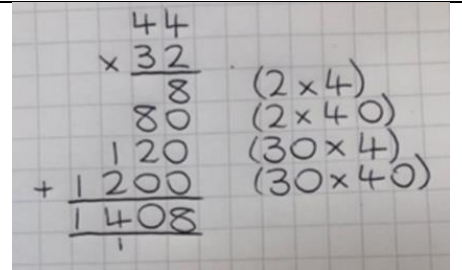 44
× 32
8 (2 × 4)
80 (2 × 40)
120 (30 × 4)
+ 1200 (30 × 40)
1408
1